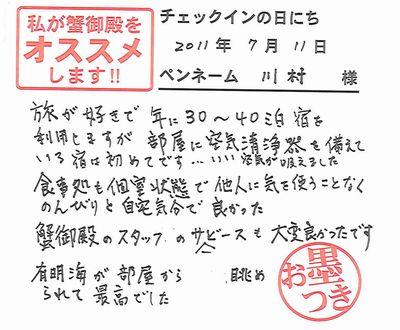 私が蟹御殿を
オススメ
します!!
チェックインの日にち
2011年 7月 11日
ペンネーム 川村 様
旅が好きで 年に30～40泊 宿を
利用しますが 部屋に空気清浄器も備えて
いる宿は初めてです…いい空気が吸えました
食事処も個室状態で他人に気を使うことなく
のんびりと自宅気分で良かった
蟹御殿のスタッフのサービスも大変良かったです
有明海が部屋から 眺め
られて 最高でした
お墨つき